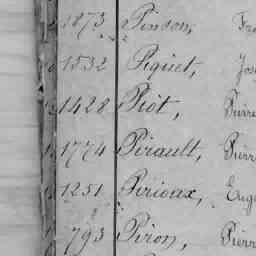 1873 Pinson, Fra
1532 Piquet, Jos
1428 Piot, Pierr
1774 Pirault, Pierr
1251 Pirioax, Eug
793 Piron, Pierr